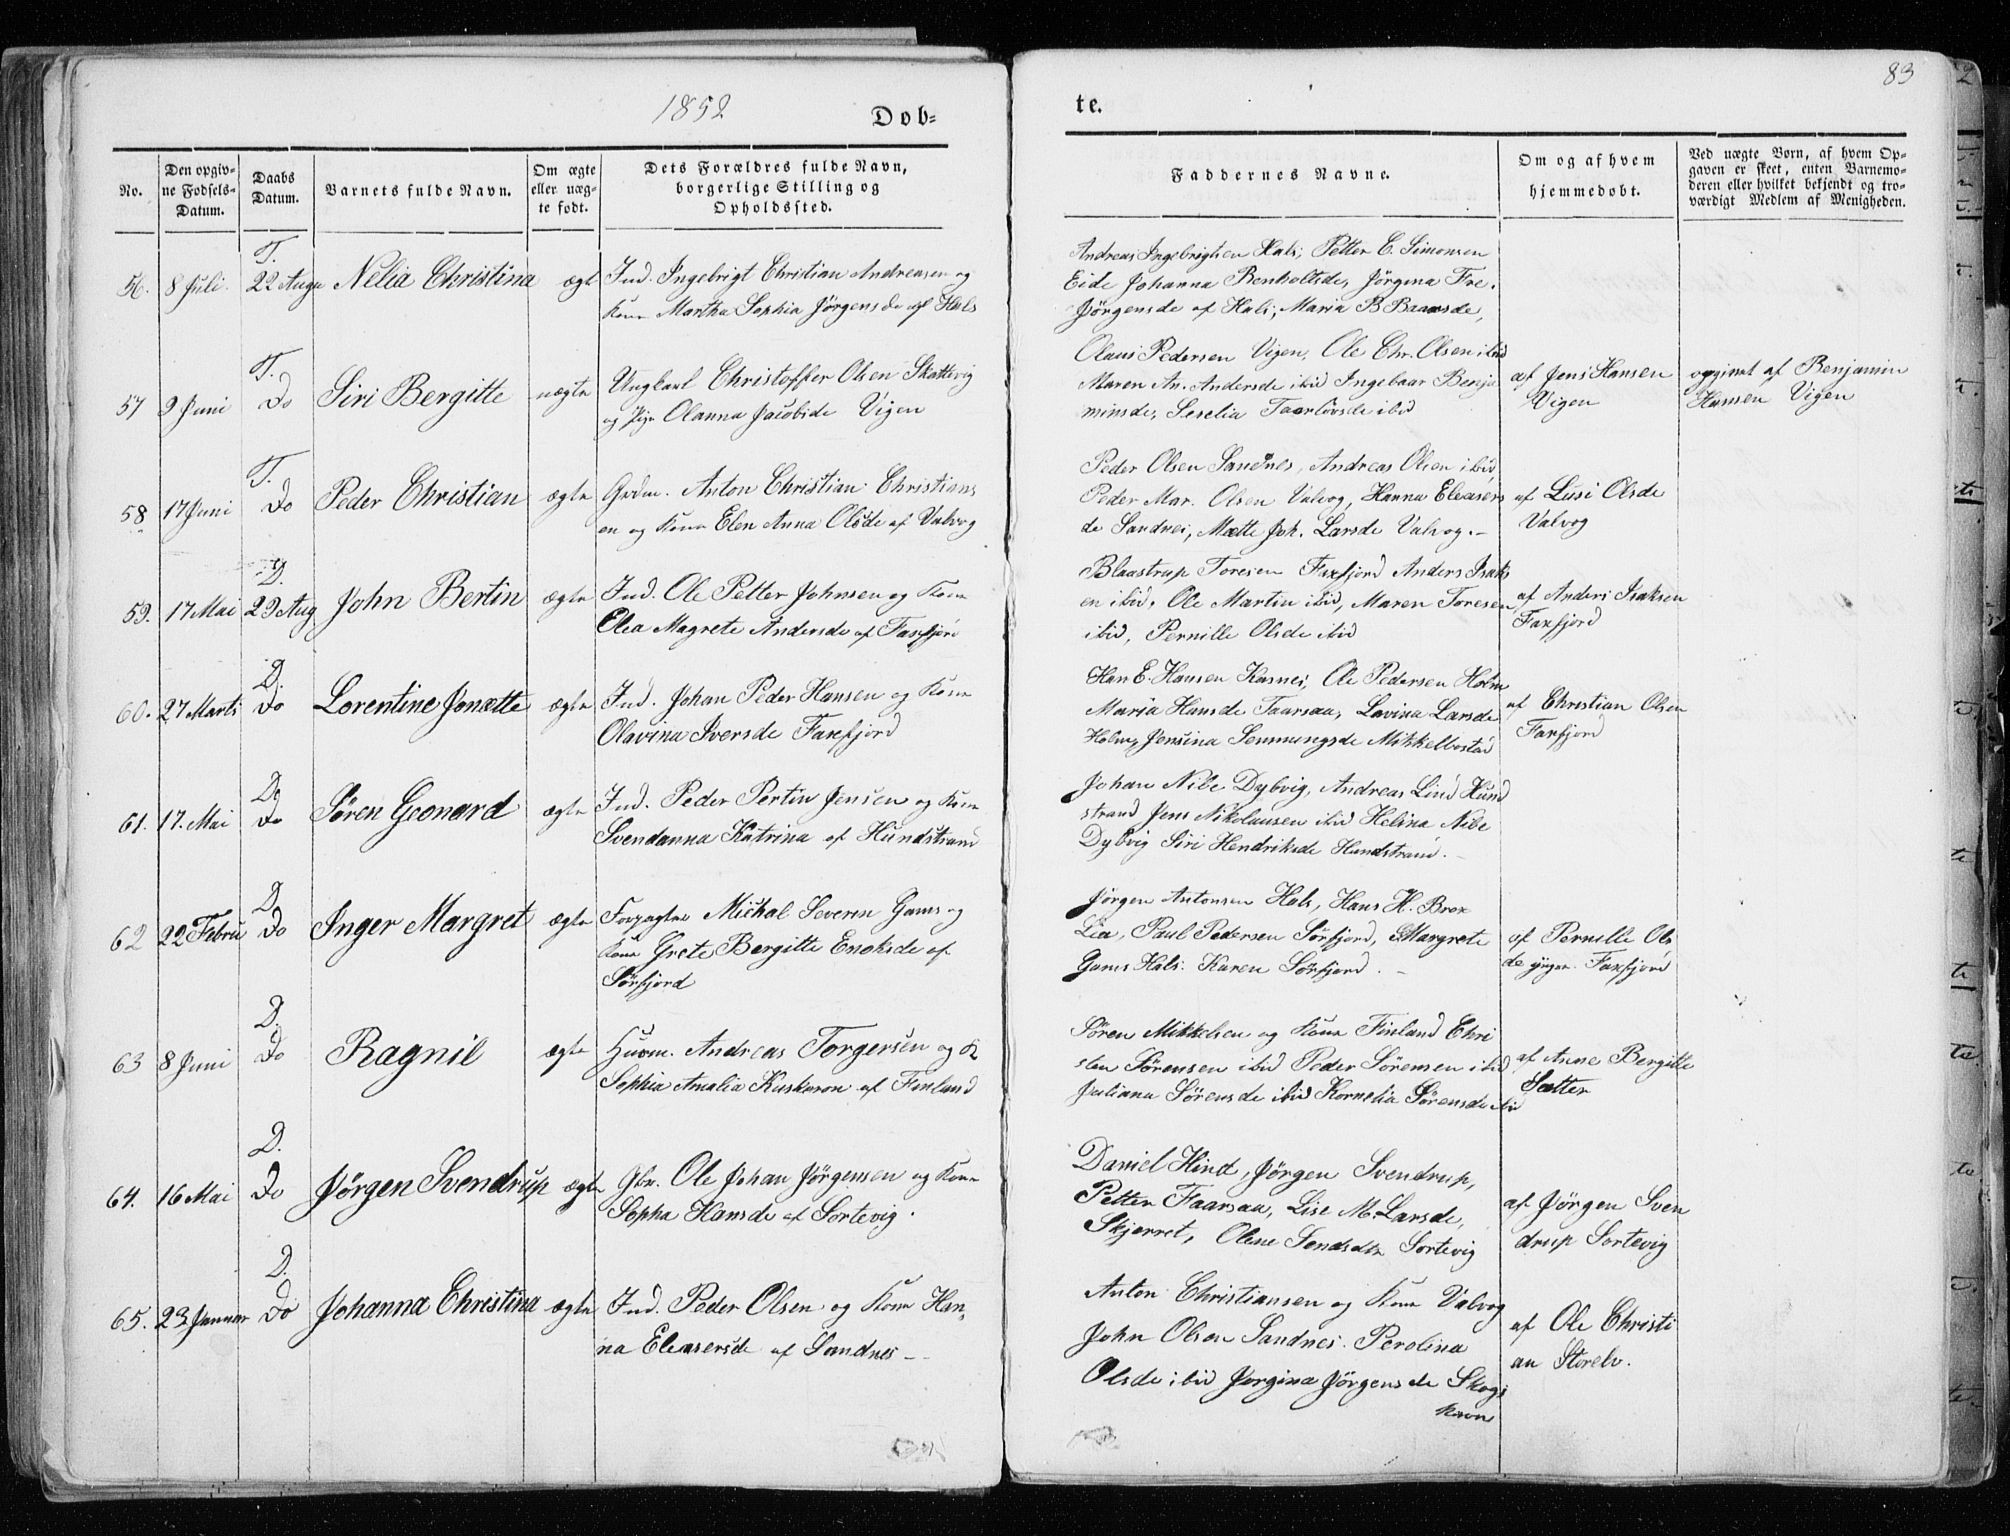 1852
Døb=
No.
Den opgiv=
ne Fødsels=
Datum.
Daabs
Datum.
Barnets fulde Navn.
Om ægte
eller uæg=
te født.
Dets Forældres fulde Navn,
borgerlige Stilling og
Opholdssted.
T.
56. 8 Juli. 22 Augu Nelia Christina ægt Ind. Ingebrigt Christian Andreasen og
Kone Martha Sophia Jörgensde af Hals
T.
57 9 Juni Do Siri Bergitte uægte Ungkarl Christoffer Olsen Skattevig
og Pige Olanna Jacobsde Vigen
T.
58. 17 Juni Do Peder Christian ægte Grdm. Anton Christian Christians
en og Kone Elen Anna Olsde af Valvog
D.
59. 17 Mai 29 Aug John Bertin ægte Ind. Ole Petter Johnsen og Kone
Elea Magrete Andersde af Faxfjord
D.
60. 27 Marts Do Lorentine Jonætte ægte Ind. Johan Peder Hansen og Kone
Olavina Iversde Faxfjord
D.
61. 17. Mai Do Sören Geonard ægte Ind. Peder Pertin Jensen og Kone
Svendanna Katrina af Hundstrand
D.
62 22 Febru Do Inger Margret ægte Forpagter Michal Severin Gams og
Kone Grete Bergitte Enoksde af
Sörfjord
D.
63 8 Juni Do Ragnil ægte Huusm. Andreas Torgersen og K
Sophia Amalia Kuskeron af Finland
D.
64. 16 Mai Do Jörgen Svendrup ægte Gbr. Ole Johan Jörgensen og Kone
Sopha Hansde af Sortevig.
D.
65. 23 Januar Do Johanna Christina ægte Ind. Peder Olsen og Kone Han,
na Eleasersde af Sandnes –
83
te.
Faddernes Navne.
Om og af hvem
hjemmedøbt.
Ved uægte Børn, af hvem Op=
gaven er skeet, enten Barnemo=
deren eller hvilket bekjendt og tro=
værdigt Medlem af Menigheden.
Andreas Ingebrigtsen Hals, Petter C. Simonsen
Eide Johanna Benholtsde, Jörgina Fre.
Jörgensde af Hals, Maria B Baarsde,
Olaus Pedersen Vigen, Ole Chr. Olsen ibid
Maren An. Andersde ibid Ingebaar Benja
minsde, Seselia Taarlövsde ibid
af Jens Hansen
Vigen
opgivet af Benjamin
Hansen Vigen
Peder Olsen Sandnes, Andreas Olsen ibid,
Peder Mar. Olsen Valvog, Hanna Eleasers
de Sandnes, Mætte Joh. Larsde Valvog. –
af Lusi Olsde
Valvog
Blaastrup Toresen Faxfjord Anders Isaks
en ibid, Ole Martin ibid, Maren Toresen
ibid, Pernille Olsde ibid
af Anders Isaksen
Faxfjord
Han E. Hansen Kasnes, Ole Pedersen Holm
Maria Hansde Faarsaa, Lovina Larsde
Holm, Jensina Semmingsde Mikkelbostad
af Christian Olsen
Faxfjord
Johan Nibe Dybvig, Andreas Lind Hund
strand Jens Nikolausen ibid Helina Nibe
Dybvig Siri Hendriksde Hundstrand. –
Jörgen Antonsen Hals, Hans H. Brox
Lia, Paul Pedersen Sörfjord, Margrete
Gams Hals. Karen Sörfjord. –
af Pernille Ols
de yngre. Faxfjord
Sören Mikkelsen og Kone Finland Chri
sten Sörensen ibid Peder Sörensen ibid
Juliana Sörensde ibid Kornelia Sörensde ibid
af Anne Bergitte
Sætter
Daniel Hind, Jörgen Svendrup,
Petter Faarsaa, Lise M. Larsde,
Skjerret, Olene Sortevig
af Jörgen Sven
drup Sortevig
Anton Christiansen og Kone Valvog
John Olsen Sandnes. Perolina
Olsde ibid Jörgina Jörgensde Skogs
havn
af Ole Christi
an Storelv.